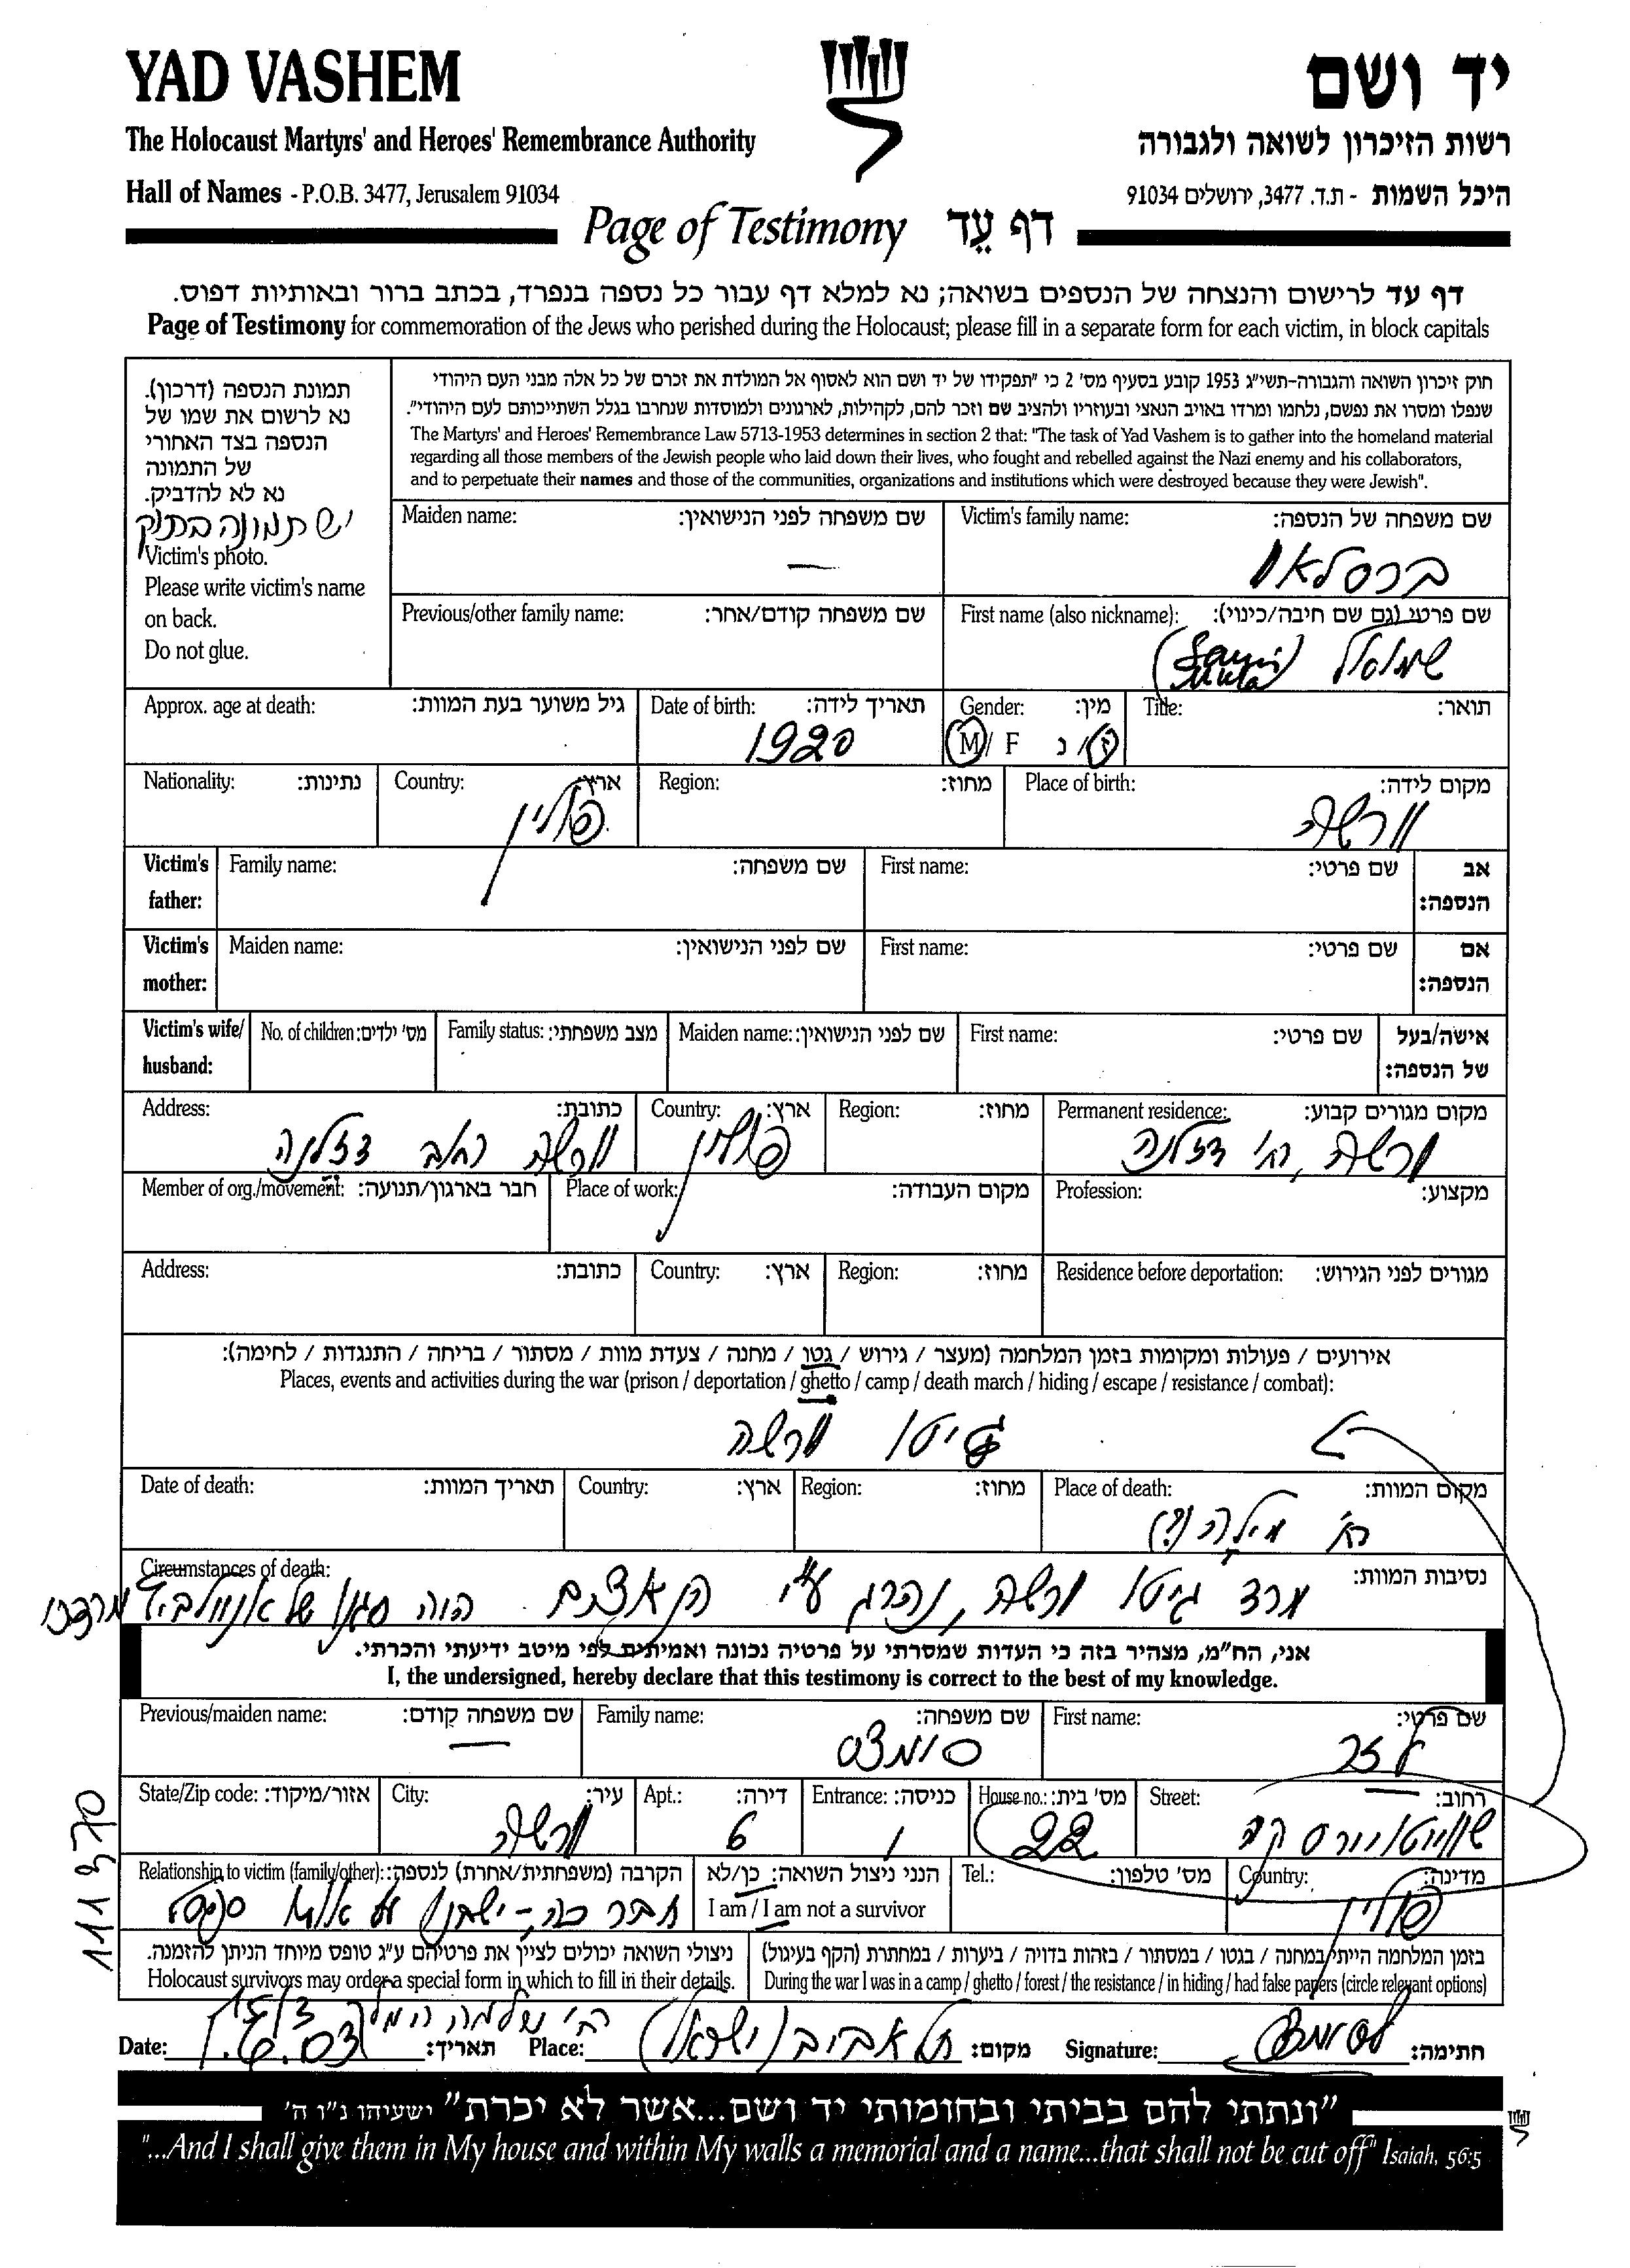 YAD VASHEM
יד ושם
The Holocaust Martyrs' and Heroes' Remembrance Authority
רשות הזיכרון לשואה ולגבורה
Hall of Names - P.O.B. 3477, Jerusalem 91034
היכל השמות - ת.ד. 3477, ירושלים 91034
Page of Testimony דף עֵד
דף עד לרישום והנצחה של הנספים בשואה; נא למלא דף עבור כל נספה בנפרד, בכתב ברור ובאותיות דפוס.
Page of Testimony for commemoration of the Jews who perished during the Holocaust; please fill in a separate form for each victim, in block capitals
תמונת הנספה (דרכון).
נא לרשום את שמו של
הנספה בצד האחורי
של התמונה
נא לא להדביק.
יש תמונה בתיק
Victim's photo.
Please write victim's name
on back.
Do not glue.
חוק זיכרון השואה והגבורה-תשי"ג 1953 קובע בסעיף מס' 2 כי "תפקידו של יד ושם הוא לאסוף אל המולדת את זכרם של כל אלה מבני העם היהודי
שנפלו ומסרו את נפשם, נלחמו ומרדו באויב הנאצי ובעוזריו ולהציב שם וזכר להם, לקהילות, לארגונים ולמוסדות שנחרבו בגלל השתייכותם לעם היהודי".
The Martyrs' and Heroes' Remembrance Law 5713-1953 determines in section 2 that: "The task of Yad Vashem is to gather into the homeland material
regarding all those members of the Jewish people who laid down their lives, who fought and rebelled against the Nazi enemy and his collaborators,
and to perpetuate their names and those of the communities, organizations and institutions which were destroyed because they were Jewish".
Victim's family name: שם משפחה של הנספה:
ברסלאו
Maiden name: שם משפחה לפני הנישואין:
—
First name (also nickname): שם פרטי (גם שם חיבה/כינוי):
שמואל
Previous/other family name: שם משפחה קודם/אחר:
Title: תואר:
Gender: מין:
M / F ז / נ
Date of birth: תאריך לידה:
1920
Approx. age at death: גיל משוער בעת המוות:
Place of birth: מקום לידה:
ורשה
Region: מחוז:
Country: ארץ:
פולין
Nationality: נתינות:
Victim's father: אב הנספה:
First name: שם פרטי:
Family name: שם משפחה:
Victim's mother: אם הנספה:
First name: שם פרטי:
Maiden name: שם לפני הנישואין:
Victim's wife/ husband: אישה/בעל של הנספה:
First name: שם פרטי:
Maiden name: שם לפני הנישואין:
Family status: מצב משפחתי:
No. of children: מס' ילדים:
Permanent residence: מקום מגורים קבוע:
ורשה, רח' דזלנה
Region: מחוז:
Country: ארץ:
פולין
Address: כתובת:
ורשה רחוב דזלנה
Profession: מקצוע:
Place of work: מקום העבודה:
Member of org./movement: חבר בארגון/תנועה:
Residence before deportation: מגורים לפני הגירוש:
Region: מחוז:
Country: ארץ:
Address: כתובת:
אירועים / פעולות ומקומות בזמן המלחמה (מעצר / גירוש / גטו / מחנה / צעדת מוות / מסתור / בריחה / התנגדות / לחימה):
Places, events and activities during the war (prison / deportation / ghetto / camp / death march / hiding / escape / resistance / combat):
גיטו ורשה
Place of death: מקום המוות:
רח' מילה (?)
Region: מחוז:
Country: ארץ:
Date of death: תאריך המוות:
Circumstances of death: נסיבות המוות:
מרד גיטו ורשה, נהרג ע"י הנאצים. היה סגנו של אנילביץ' מרדכי
אני, הח"מ, מצהיר בזה כי העדות שמסרתי על פרטיה נכונה ואמיתית לפי מיטב ידיעתי והכרתי.
I, the undersigned, hereby declare that this testimony is correct to the best of my knowledge.
First name: שם פרטי:
Family name: שם משפחה:
Previous/maiden name: שם משפחה קודם:
—
Street: רחוב:
House no.: מס' בית:
22
Entrance: כניסה:
1
Apt.: דירה:
6
City: עיר:
ורשה
State/Zip code: אזור/מיקוד:
Country: מדינה:
פולין
Tel.: מס' טלפון:
הנני ניצול השואה: כן/לא
I am / I am not a survivor
Relationship to victim (family/other): הקרבה (משפחתית/אחרת) לנספה:
בזמן המלחמה הייתי במחנה / בגטו / במסתור / בזהות בדויה / ביערות / במחתרת (הקף בעיגול)
During the war I was in a camp / ghetto / forest / the resistance / in hiding / had false papers (circle relevant options)
ניצולי השואה יכולים לציין את פרטיהם ע"ג טופס מיוחד הניתן להזמנה.
Holocaust survivors may order a special form in which to fill in their details.
רח' שלמה המלך
Date: 1.6.03 תאריך:
Place: תל אביב (ישראל) מקום:
Signature: חתימה:
111370
"ונתתי להם בביתי ובחומותי יד ושם...אשר לא יכרת" ישעיהו נ"ו ה'
"...And I shall give them in My house and within My walls a memorial and a name...that shall not be cut off" Isaiah, 56:5